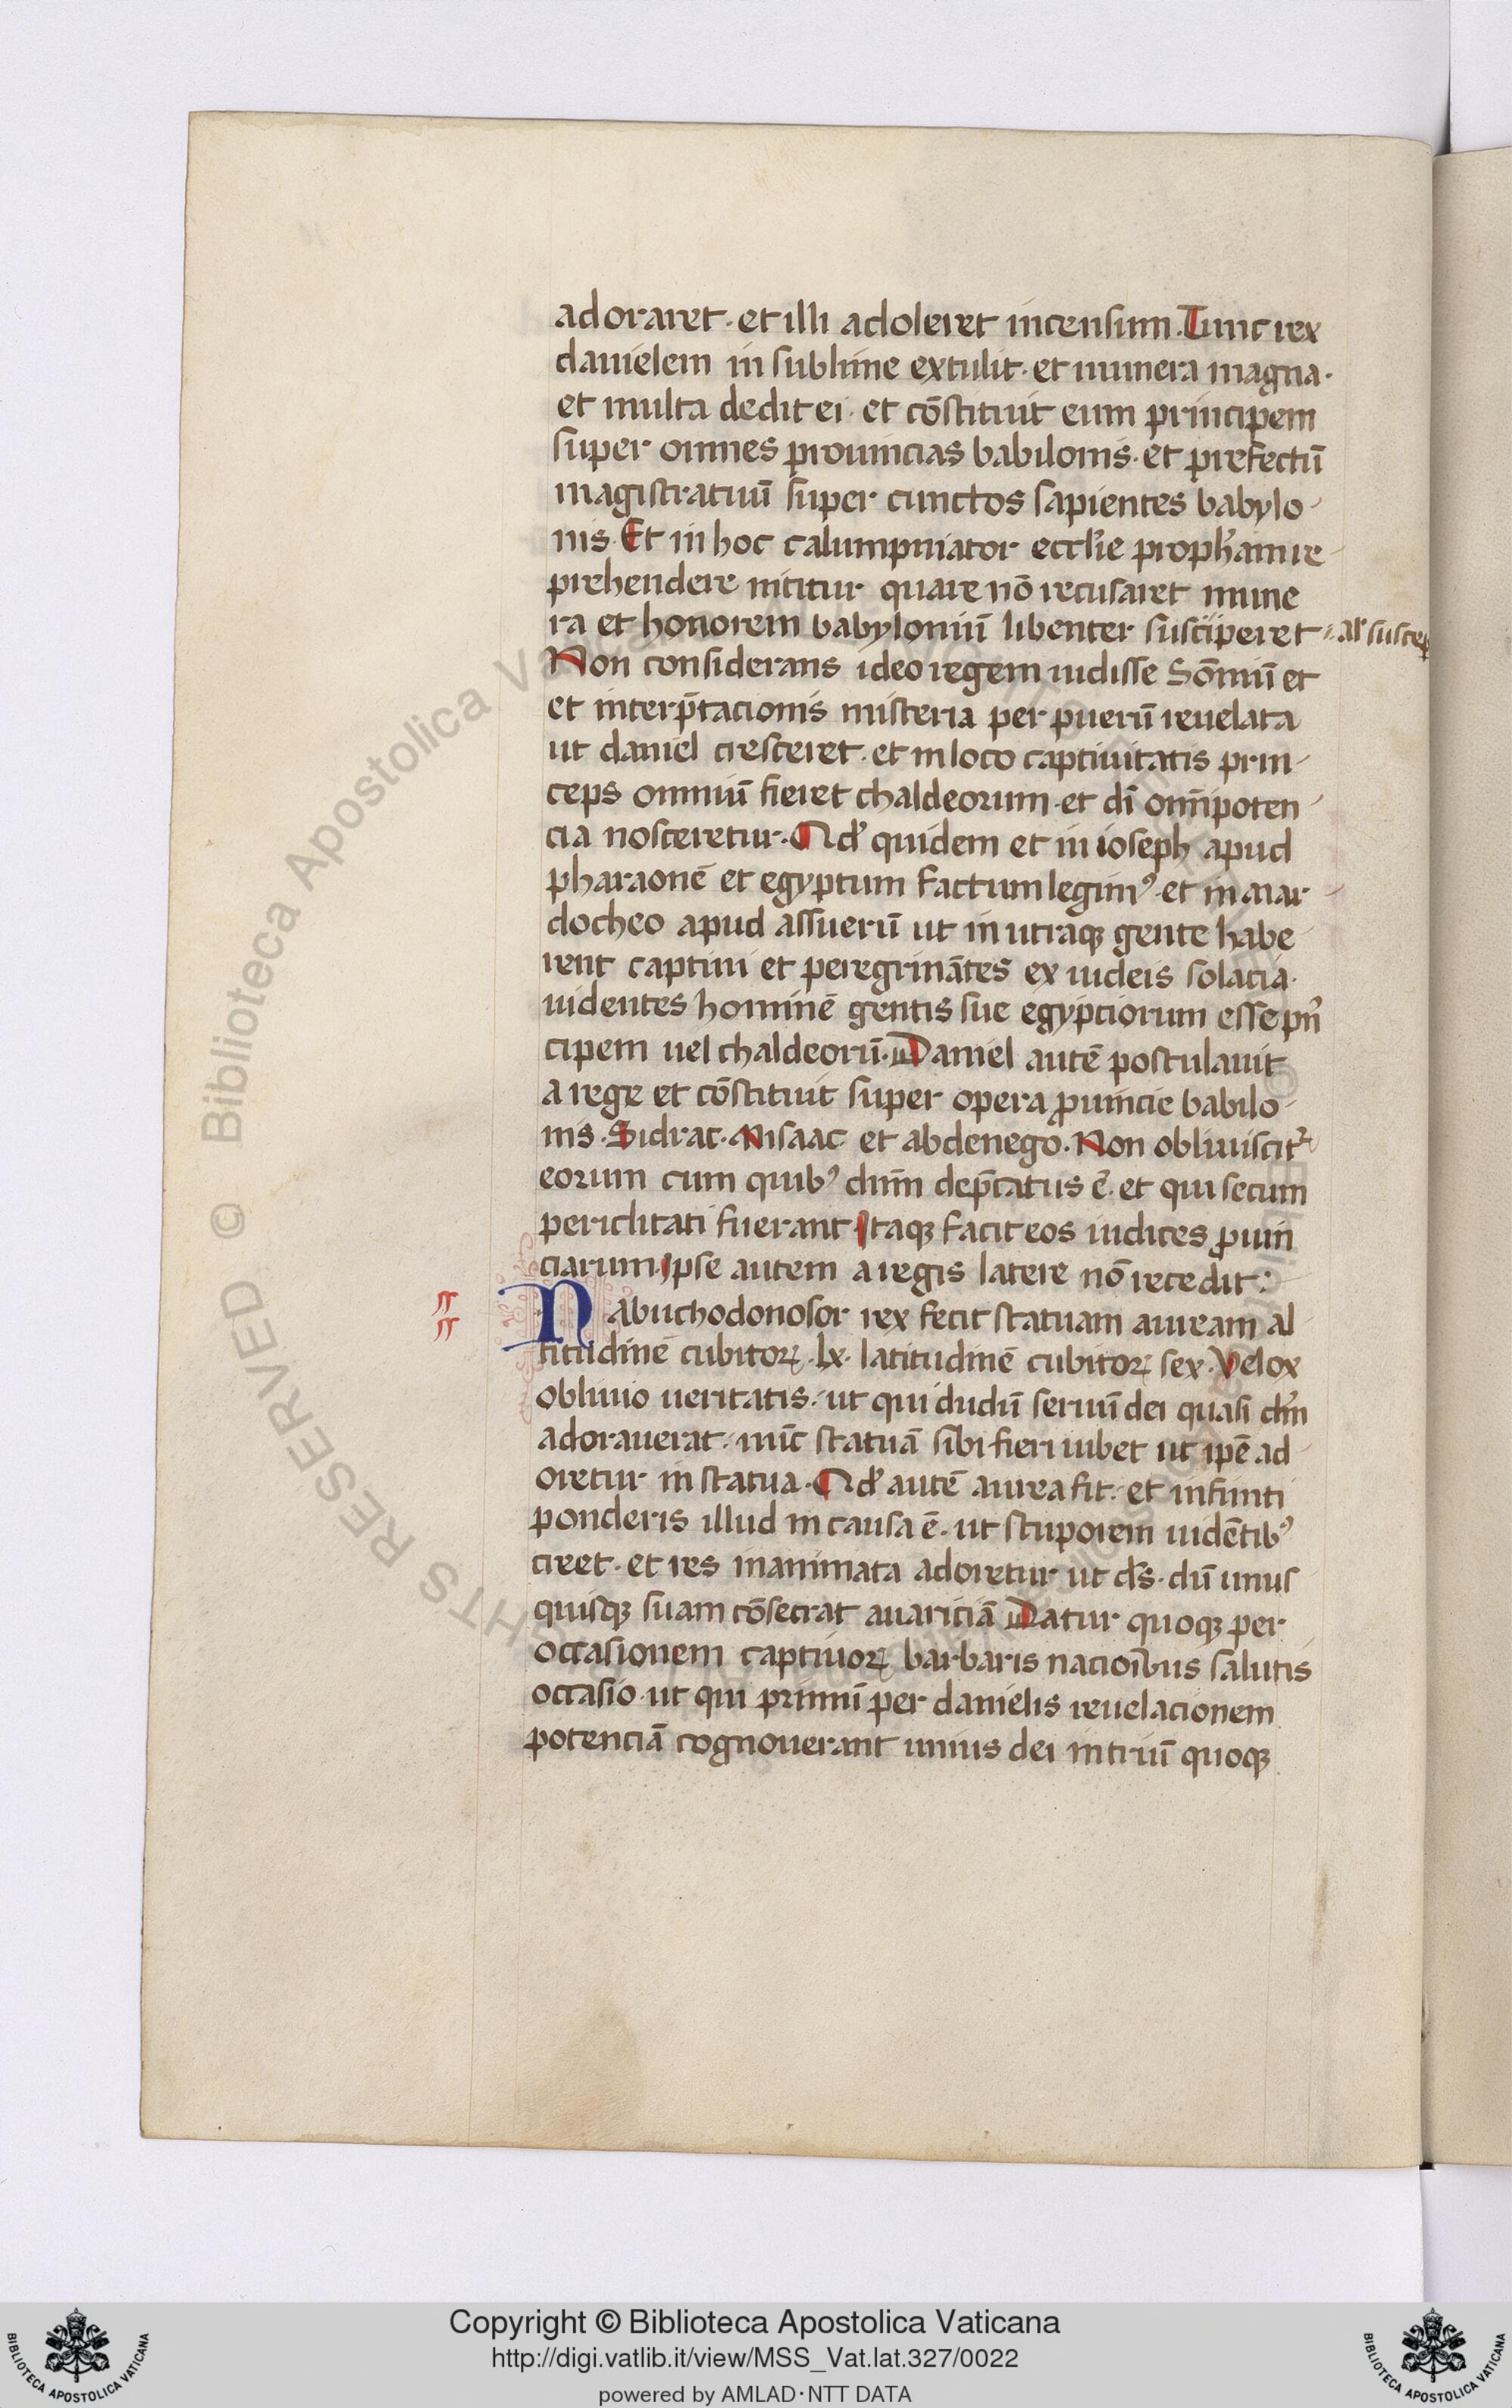 adoraret · et illi adoleret incensum. Tunc rex
danielem in sublime extulit · et munera magna ·
et multa dedit ei · et cōstituit eum principem
super omnes prouincias babilonis · et prefectū
magistratuū super cunctos sapientes babylo
nis. Et in hoc calumpniator eccl'ie proph'am re
prehendere nititur quare nō recusaret mune
ra et honorem babyloniū libenter susciperet · al' suscep
Non considerans ideo regem uidisse Sōniū et
et interp̄tacionis misteria per puerū reuelata
ut daniel cresceret · et in loco captiuitatis prin
ceps omniū fieret chaldeorum · et dī om̄ipoten
cia nosceretur · Qd' quidem et in ioseph apud
pharaonē et egyptum factum legimꝰ · et in mar
docheo apud assuerū ut in utraqꝫ gente habe
rent captiui et peregrinātes ex iudeis solacia ·
uidentes hominē gentis sue egypciorum esse pn̄
cipem uel chaldeorū. Daniel autē postulauit
a rege et cōstituit super opera ꝓuincie babilo
nis · Sidrac · Misaac et abdenego. Non obliuiscit᷑
eorum cum quibꝰ dnm̄ dep̄catus ē · et qui secum
periclitati fuerant Itaqꝫ facit eos iudices ꝓuin
ciarum. ipse autem a regis latere nō recedit :
Nabuchodonosor rex fecit statuam auream al
titudinē cubitoꝝ · lx · latitudinē cubitoꝝ sex · Velox
obliuio ueritatis · ut qui dudū seruū dei quasi dm̄
adorauerat · nūc statuā sibi fieri iubet ut ip̄e ad
oretur in statua · Qd' autē aurea fit · et infiniti
ponderis illud in causa ē · ut stuporem uidētibꝰ
creet · et res inanimata adoretur ut ds̄ · dū unus
quisqꝫ suam cōsecrat auariciā Datur quoqꝫ per
occasionem captiuoꝝ barbaris nacioībus salutis
occasio · ut qui primū per danielis reuelacionem
potenciā cognouerant unius dei in triū quoqꝫ
Copyright © Biblioteca Apostolica Vaticana
http://digi.vatlib.it/view/MSS_Vat.lat.327/0022
powered by AMLAD·NTT DATA